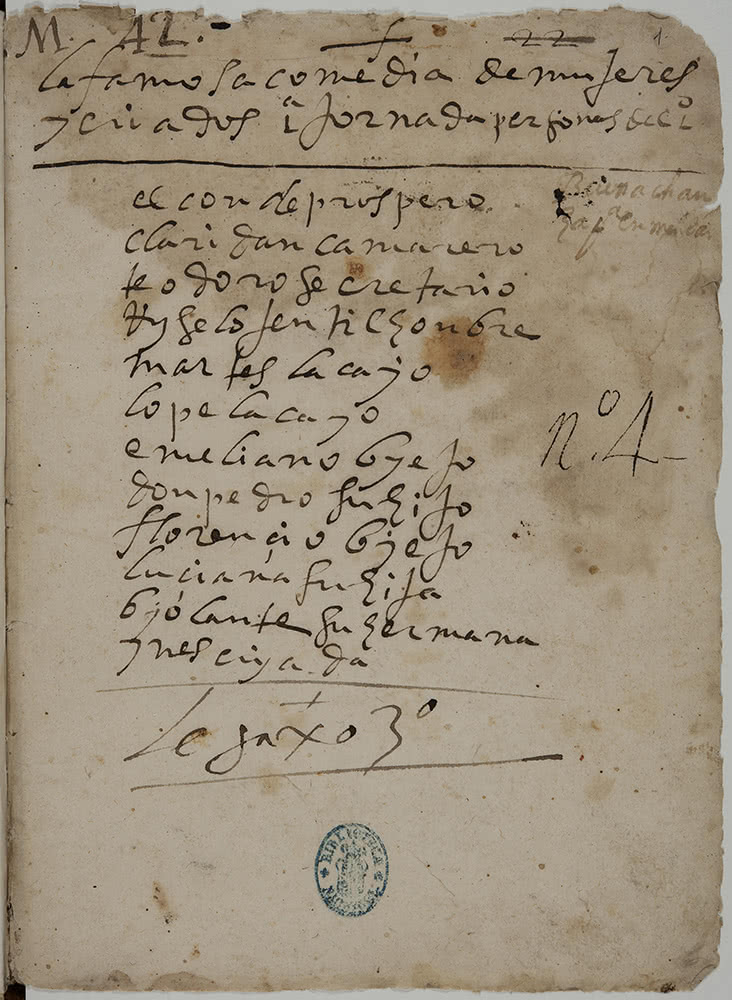 M. 42.- 22 1
la famosa comedia de mujeres
y criados 1ª Jornada personas del 1º
el conde prospero
claridan camarero
teodoro secretario
Ryselo Jentilhonbre
martes lacayo
lope lacayo
nº. 4-
emeliano byejo
don pedro su hijo
florencio byejo
luciana su hija
byolante su hermana
ynes criada
Legaxo 3º
BIBLIOTECA